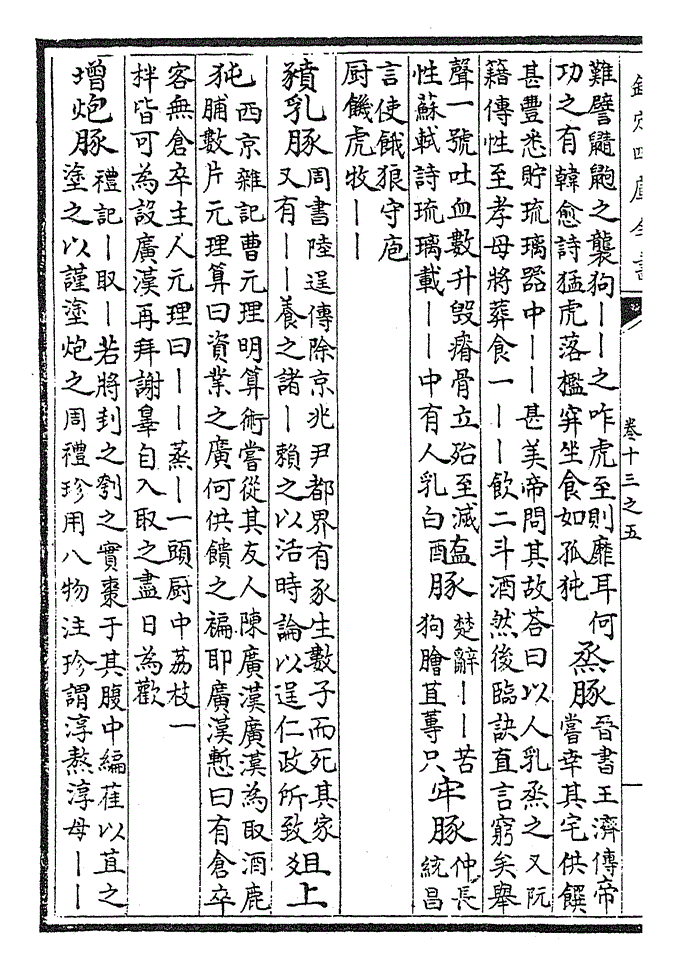 欽定四庫全書
卷十三之五
難譬鼷鼩之襲狗｜｜之咋虎至則靡耳何
功之有韓愈詩猛虎落檻穽坐食如孤㹠
烝豚
晉書王濟傳帝
嘗幸其宅供饌
甚豐悉貯琉璃器中｜｜甚美帝問其故荅曰以人乳烝之又阮
籍傳性至孝母將葬食一｜｜飲二斗酒然後臨訣直言窮矣舉
聲一號吐血數升毀瘠骨立殆至滅
性蘇軾詩琉璃載｜｜中有人乳白
醢豚
楚辭｜｜苦
狗膾苴蓴只
牢豚
仲長
統昌
言使餓狼守庖
厨饑虎牧｜｜
豶乳豚
周書陸逞傳除京兆尹都界有豕生數子而死其家
又有｜｜養之諸｜賴之以活時論以逞仁政所致
俎上
㹠
西京雜記曹元理明算術嘗從其友人陳廣漢廣漢為取酒鹿
脯數片元理算曰資業之廣何供饋之褊耶廣漢慙曰有倉卒
客無倉卒主人元理曰｜｜蒸｜一頭厨中荔枝一
柈皆可為設廣漢再拜謝辠自入取之盡日為歡
增炮豚
禮記｜取｜若將刲之刳之實棗于其腹中編萑以苴之
塗之以謹塗炮之周禮珍用八物注珍謂淳熬淳母｜｜